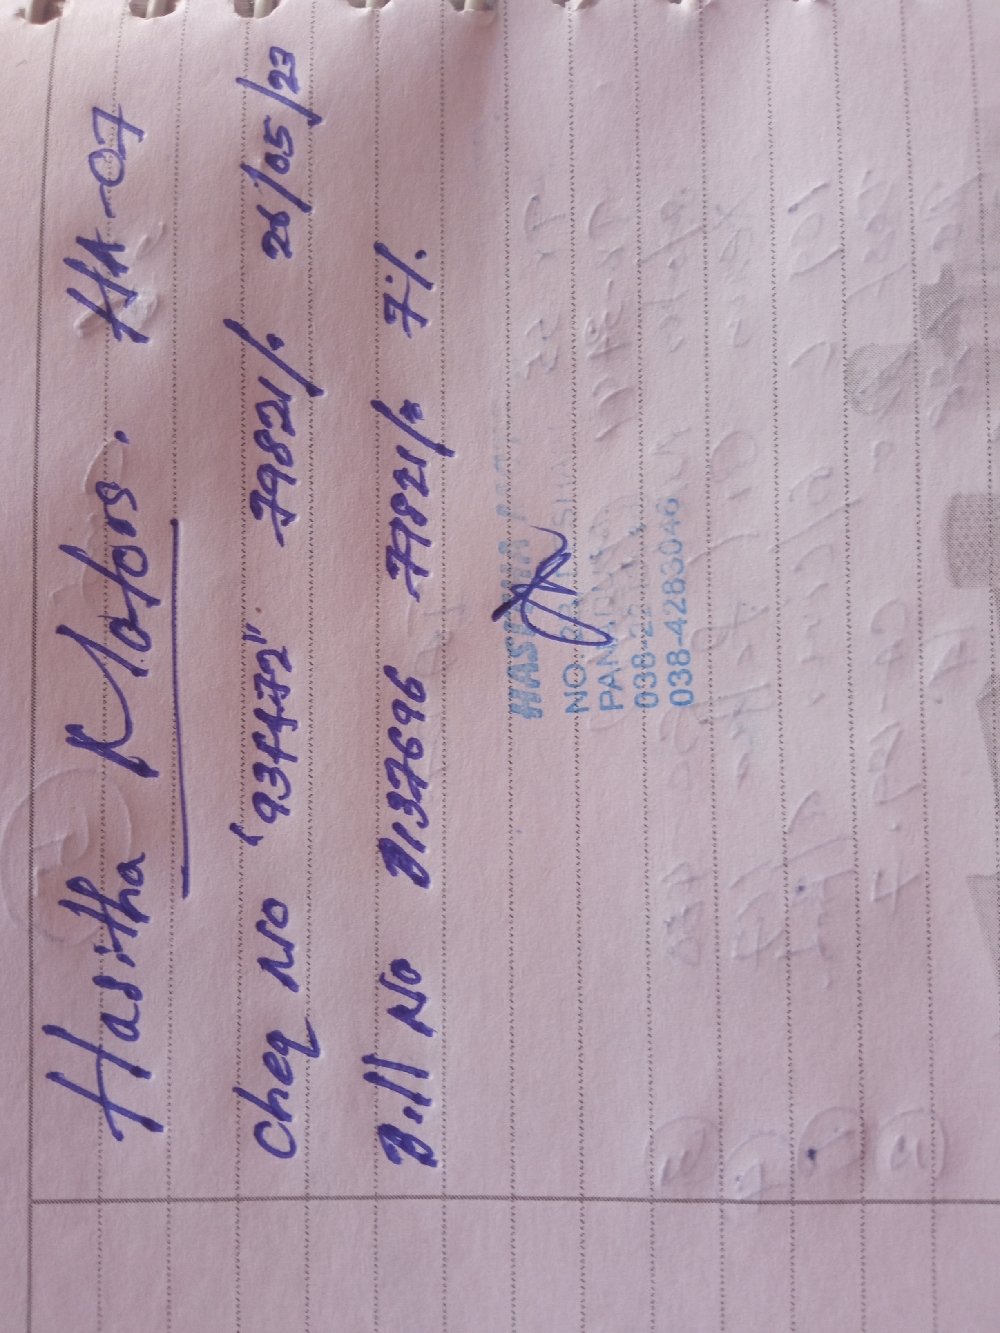 Hasitha Motors. HA-07
Cheq No "934472" 79821/. 26/05/23
Bill No B137696 79821/= 7%.
HASITHA
NO:
038-22
038-4283046